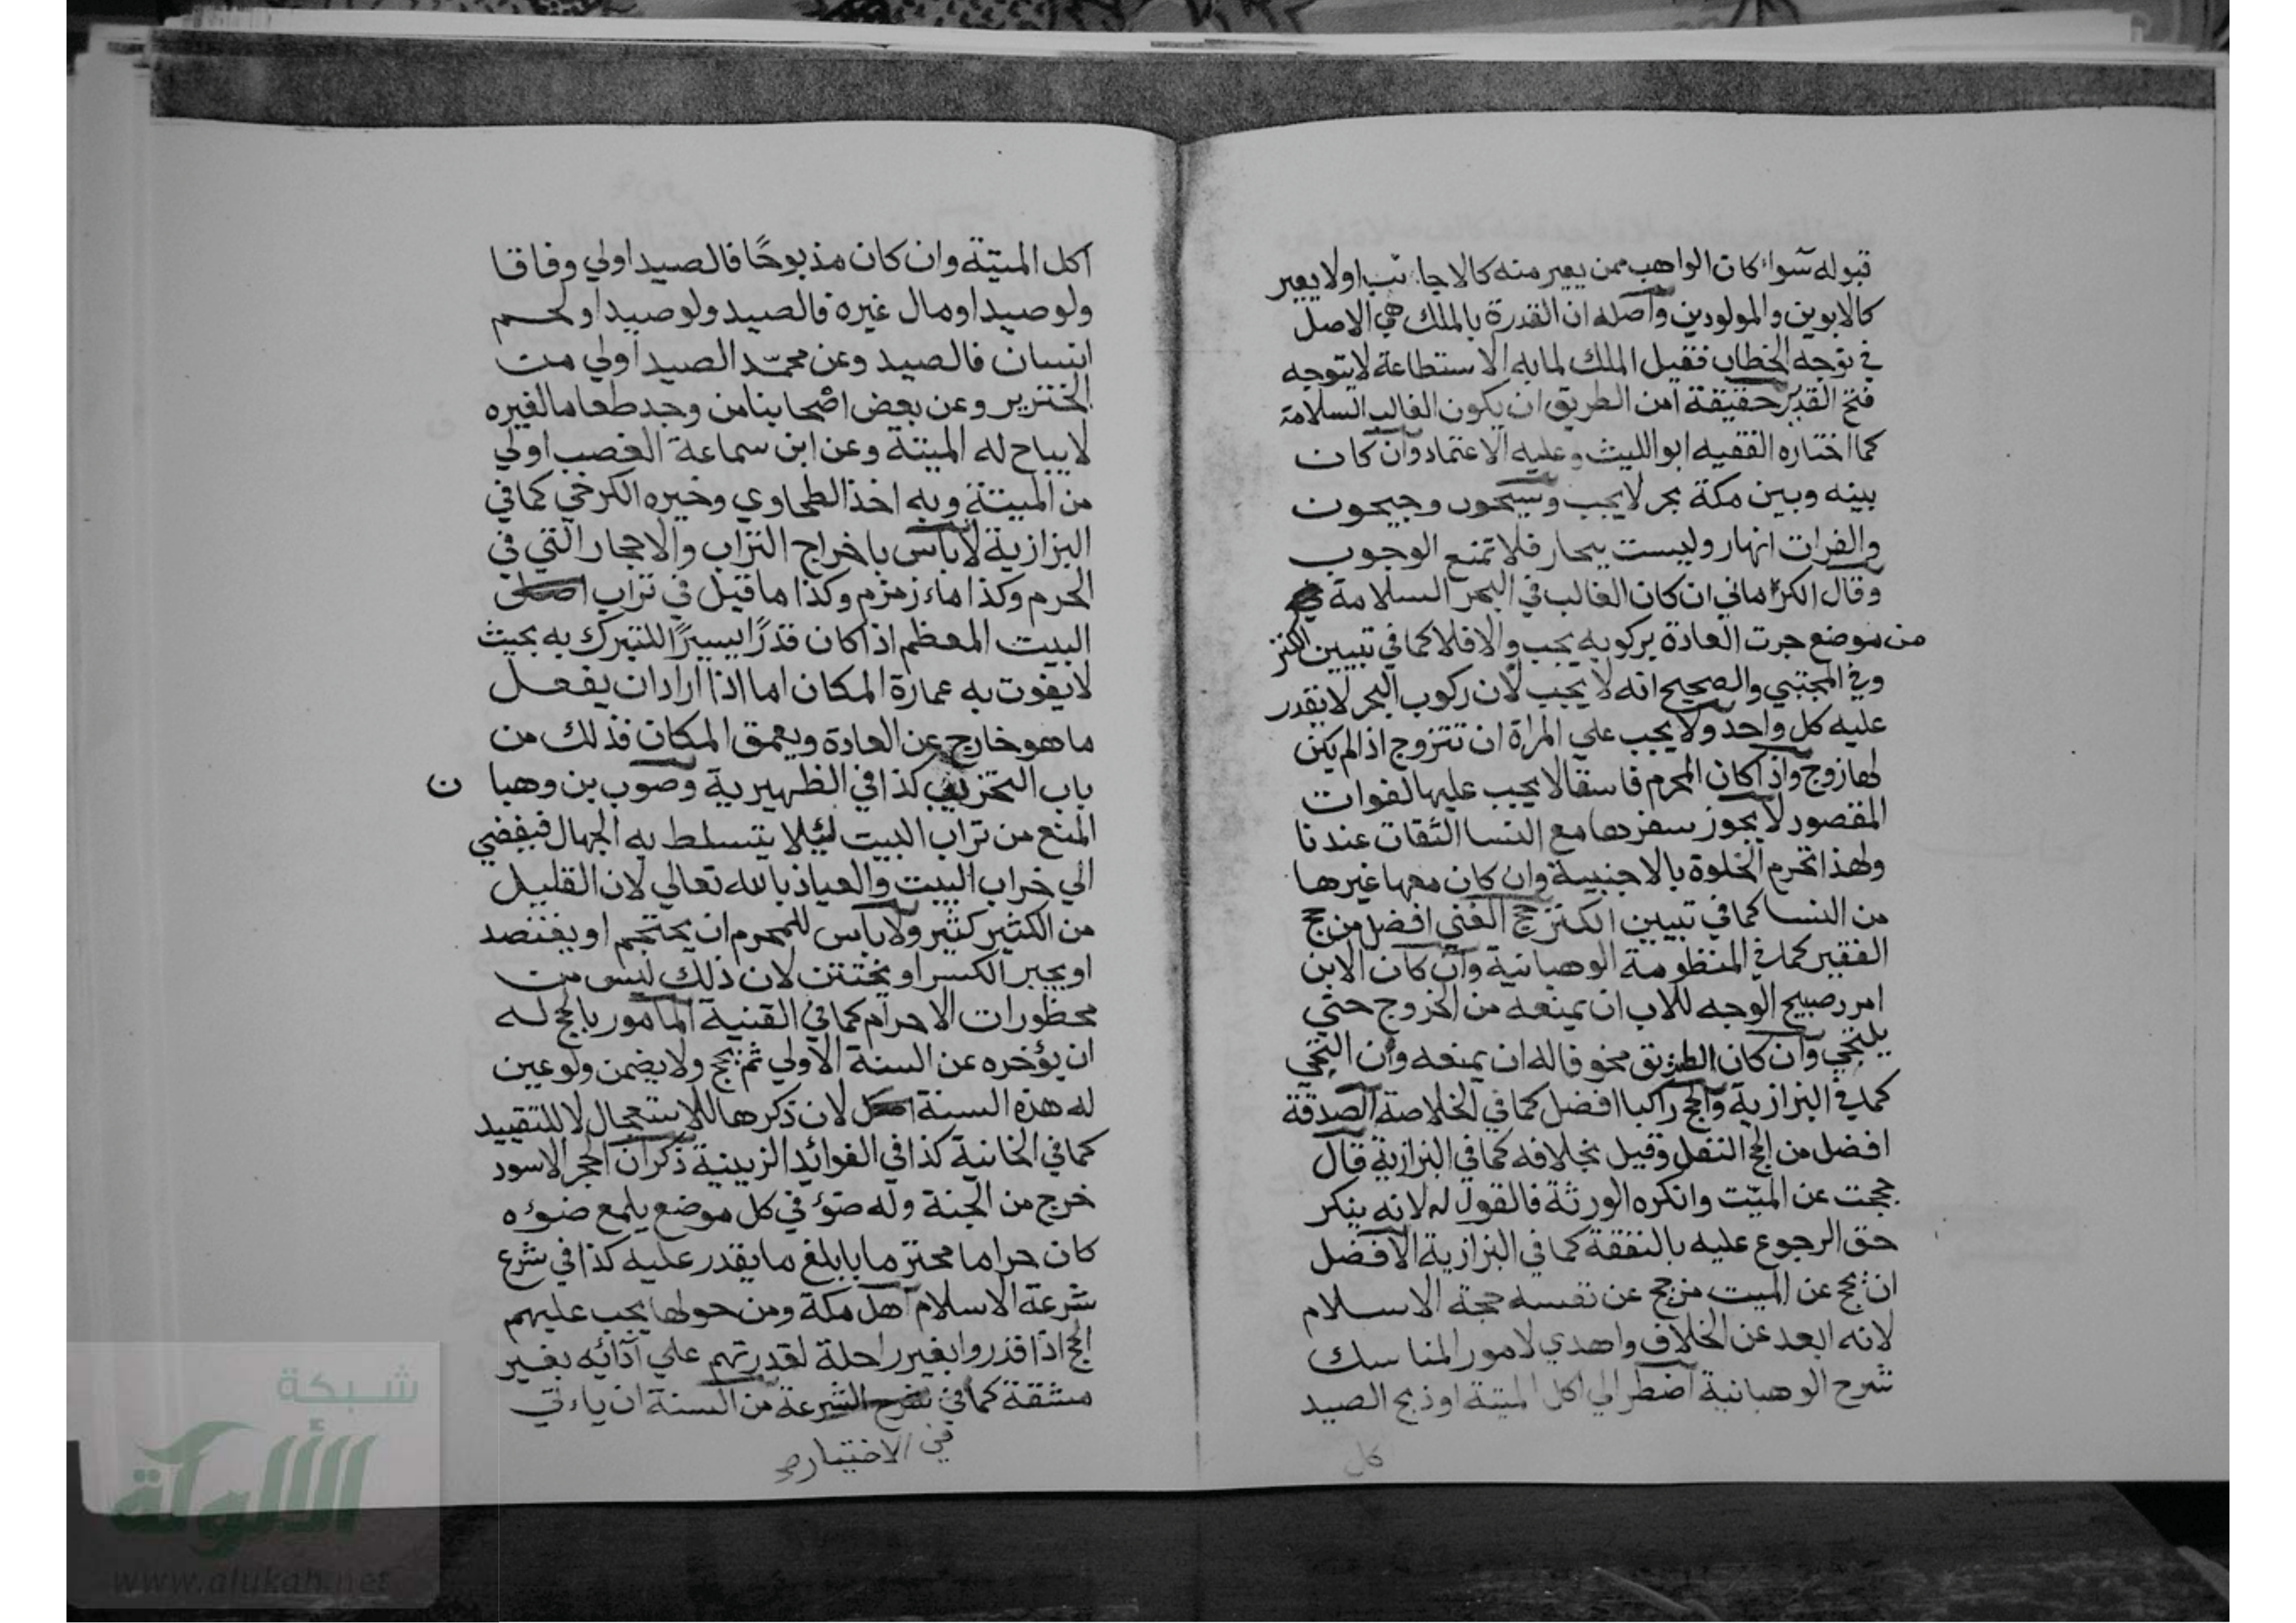 قبوله سواء كان الواهب ممن يعير منه كالاجانب اولا يعير
كالابوين والمولودين واصله ان القدرة بالملك هي الاصل
في توجه الخطاب فقيل الملك لما به الاستطاعة لا يتوجه
فتح القدير حقيقة امن الطريق ان يكون الغالب السلامة
كما اختاره الفقيه ابو الليث وعليه الاعتماد وان كان
بينه وبين مكة بحر لا يجب وسيحون وجيحون
والفرات انهار وليست ببحار فلا تمنع الوجوب
وقال الكرماني ان كان الغالب في البحر السلامة
من موضع جرت العادة بركوبه يجب والا فلا كما في تبيين الكنز
وفي المجتبي والصحيح انه لا يجب لان ركوب البحر لا يقدر
عليه كل واحد ولا يجب علي المراة ان تتزوج اذا لم يكن
لها زوج واذا كان المحرم فاسقا لا يجب عليها لفوات
المقصود لا يجوز سفرها مع النسا الثقات عندنا
ولهذا تحرم الخلوة بالاجنبية وان كان معها غيرها
من النسا كما في تبيين الكنز حج الغني افضل من حج
الفقير كما في المنظومة الوهبانية وان كان الابن
امرد صبيح الوجه للاب ان يمنعه من الخروج حتي
يلتحي وان كان الطريق مخوفا له ان يمنعه وان التحي
كما في البزازية والحج راكبا افضل كما في الخلاصة الصدقة
افضل من الحج النفل وقيل بخلافه كما في البزازية قال
حججت عن الميت وانكره الورثة فالقول له لانه ينكر
حق الرجوع عليه بالنفقة كما في البزازية الافضل
ان يحج عن الميت من حج عن نفسه حجة الاسلام
لانه ابعد عن الخلاف واهدي لامور المناسك
شرح الوهبانية اضطر الي اكل الميتة او ذبح الصيد
كل
اكل الميتة وان كان مذبوحًا فالصيد اولي وفاقا
ولو صيدا ومال غيره فالصيد ولو صيدا ولحم
انسان فالصيد وعن محمّد الصيد اولي من
الخنزير وعن بعض اصحابنا من وجد طعاما لغيره
لا يباح له الميتة وعن ابن سماعة الغصب اولي
من الميتة وبه اخذ الطحاوي وخيره الكرخي كما في
البزازية لا باس باخراج التراب والاحجار التي في
الحرم وكذا ماء زمزم وكذا ما قيل في تراب
البيت المعظم اذا كان قدرًا يسيرًا للتبرك به بحيث
لا يفوت به عمارة المكان اما اذا اراد ان يفعل
ما هو خارج عن العادة ويعمق المكان فذلك من
باب التخريب كذا في الظهيرية وصوب بن وهبا ن
المنع من تراب البيت لئلا يتسلط به الجهال فيفضي
الي خراب البيت والعياذ بالله تعالي لان القليل
من الكثير كثير ولا باس للمحرم ان يحتجم او يفتصد
او يجبر الكسر او يختتن لان ذلك ليس من
محظورات الاحرام كما في القنية المامور بالحج له
ان يؤخره عن السنة الاولي ثم يحج ولا يضمن ولو عين
له هذه السنة لان ذكرها للاستعجال لا للتقييد
كما في الخانية كذا في الفوائد الزينية ذكر ان الحجر الاسود
خرج من الجنة وله ضوؤ في كل موضع يلمع ضوءه
كان حراما محترما بابلغ ما يقدر عليه كذا في شرع
شرعة الاسلام اهل مكة ومن حولها يجب عليهم
الحج اذا قدروا بغير راحلة لقدرتهم علي آدائه بغير
مشقة كما في شرح الشرعة من السنة ان ياءتي
في الاختيار صح
شبكة
الألوكة
www.alukah.net